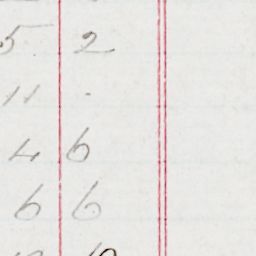 5 2
11 .
4 6
6 6